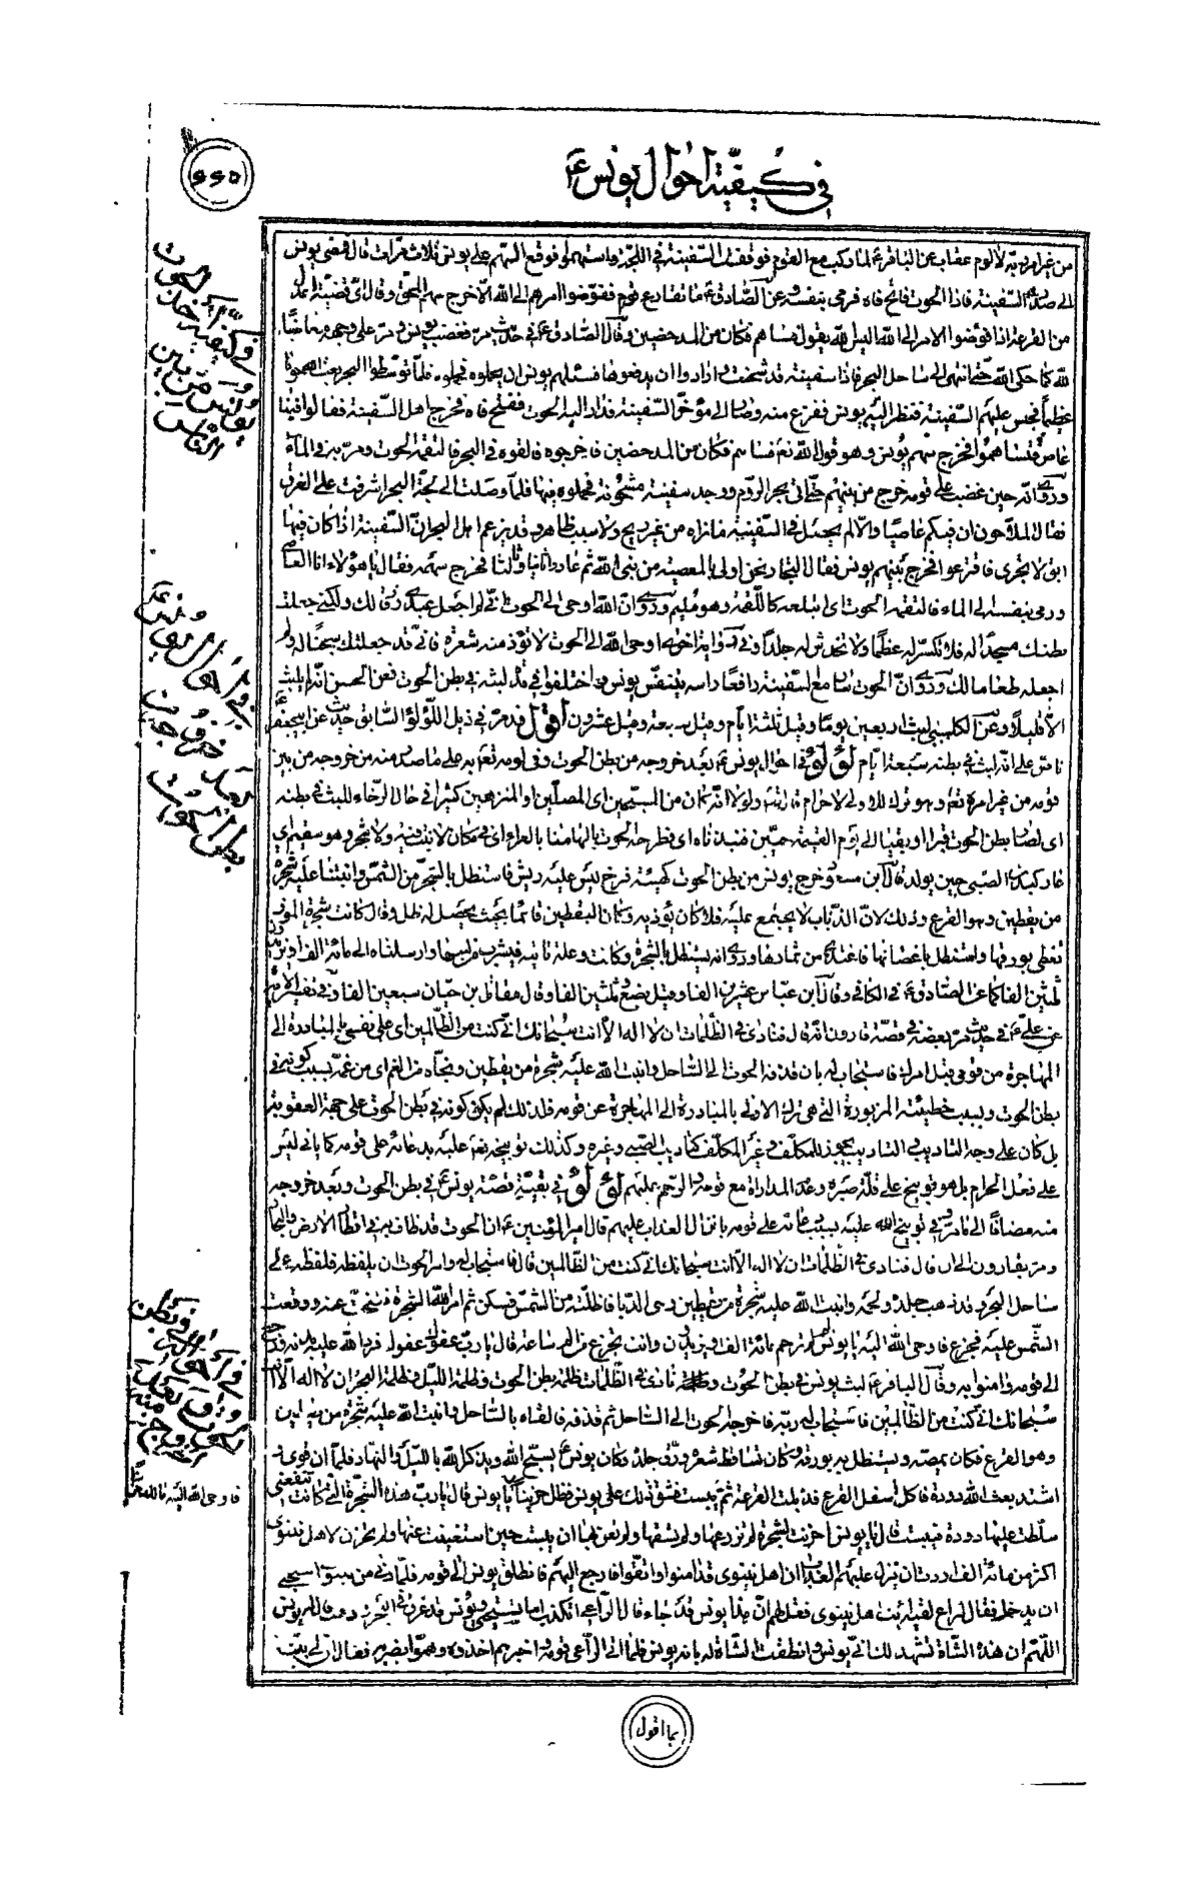 في كيفية احوال يونس ع
٥٦٦
من غير امر ربه لا لوم عقاب عن الباقر ع لما ركب مع القوم فوقفت السفينة في اللجة واستهموا فوقع السهم على يونس ثلاث مرات قال فمضى يونس
الى صدر السفينة فاذا الحوت فاتح فاه فرمى بنفسه وعن الصادق ع ما تقارع قوم ففوضوا امرهم الى الله الا خرج سهم المحق وقال اي قضية اعدل
من القرعة اذا فوضوا الامر الى الله اليس الله يقول فساهم فكان من المدحضين وقال الصادق ع في حديث مر فغضب يونس ومر على وجهه مغاضبا
لله كما حكى الله حتى انتهى الى ساحل البحر فاذا سفينة قد شحنت وارادوا ان يدفعوها فسئلهم يونس ان يحملوه فحملوه فلما توسطوا البحر بعث الله حوتا
عظيما فحبس عليهم السفينة فنظر اليه يونس ففزع منه وصار الى مؤخر السفينة فدار اليه الحوت ففتح فاه فخرج اهل السفينة فقالوا فينا
عاص فتساهموا فخرج سهم يونس وهو قول الله نعم فساهم فكان من المدحضين فاخرجوه فالقوه في البحر فالتقمه الحوت ومر به في الماء
وروي انه حين غضب على قومه خرج من بينهم حتى اتى بحر الروم ووجد سفينة مشحونة فحملوه فيها فلما وصلت الى لجة البحر اشرفت على الغرق
فقال الملاحون ان فيكم عاصيا والا لم يحصل في السفينة ما نراه من غير ريح ولا سبب ظاهر وقد يزعم اهل البحر ان السفينة اذا كان فيها
ابق لا تجري فاقترعوا فخرج بينهم يونس فقال التجار نحن اولى بالمعصية من نبي الله ثم عادوا ثانيا وثالثا فخرج سهمه فقال يا هؤلاء انا العاصي
ورمى بنفسه الى الماء فالتقمه الحوت اي ابتلعه كاللقمة وهو مليم وروي ان الله اوحى الى الحوت اني لم اجعل عبدي رزقا لك ولكني جعلت
بطنك مسجدا له فلا تكسرن له عظما ولا تخدش له جلدا وفي رواية اخرى اوحى الله الى الحوت لا تؤذ منه شعرة فاني قد جعلتك سجنا له ولم
اجعله طعاما لك وروي ان الحوت سار مع السفينة رافعا راسه يتنفس يونس وقد اختلفوا في مدة لبثه في بطن الحوت فعن الحسن انه لم يلبث
الا قليلا وعن الكلبي لبث اربعين يوما وقيل ثلثة ايام وقيل سبعة وقيل عشرون اقول قد مر في ذيل اللؤلؤ السابق حديث عن ابيجعفر ع
ناص على انه لبث في بطنه سبعة ايام لؤلؤ في احوال يونس ع بعد خروجه من بطن الحوت وفي لومه نعم به على ما صدر منه من خروجه من بين
قومه من غير امره نعم وهو ترك الاولى لا حرام قال الله ولولا انه كان من المسبحين اي المصلين والمنزهين كثيرا في حال الرخاء للبث في بطنه
اي لصار بطن الحوت قبرا وبقيا الى يوم القيمة حيين فنبذناه اي فطرحه الحوت بالهامنا بالعراء اي في مكان لا نبت فيه ولا شجر وهو سقيم اي
عار كبدن الصبي حين يولد قال ابن مسعود خرج يونس من بطن الحوت كهيئة فرخ ليس عليه ريش فاستظل بالشجر من الشمس وانبتنا عليه شجرة
من يقطين وهو القرع وذلك لان الذباب لا يجتمع عليه فلا كان يؤذيه وكان اليقطين قائما بحيث يحصل له ظل وقال كانت شجرة الموز
تغطى بورقها واستظل باغصانها فاغتذى من ثمارها وروي انه يستظل بالشجرة وكانت وعلة تاتيه فيشرب من لبنها وارسلناه الى مائة الف او يزيدون
ثلثين الفا كما عن الصادق ع في الكافي وقال ابن عباس عشرين الفا وقيل بضع وثلثين الفا وقال مقاتل بن حيان سبعين الفا وفي تفسير الامير
عن علي ع في حديث مر بعضه في قصة قارون انه قال فنادى في الظلمات ان لا اله الا انت سبحانك اني كنت من الظالمين اي على نفسي بالمبادرة الى
المهاجرة من قومي قبل امرك فاستجاب له بان قذفه الحوت الى الساحل وانبت الله عليه شجرة من يقطين ونجاه من الغم اي من غمه بسبب كونه في
بطن الحوت وبسبب خطيئته المزبورة التي هي ترك الاولى بالمبادرة الى المهاجرة عن قومه فلذلك لم يكن كونه في بطن الحوت على جهة العقوبة
بل كان على وجه التاديب والتاديب يجوز للمكلف وغير المكلف كتاديب الصبي وغيره وكذلك توبيخه نعم عليه بدعائه على قومه كما ياتي ليس
على فعل الحرام بل هو توبيخ على قلة صبره وعدم المداراة مع قومه والترحم عليهم لؤلؤ في بقية قصة يونس ع في بطن الحوت وبعد خروجه
منه مضافا الى ما مر وفي توبيخ الله عليه بسبب دعائه على قومه بانزال العذاب عليهم قال امير المؤمنين ع ان الحوت قد طاف به في اقطار الارض والبحار
ومر بقارون الى ان قال فنادى في الظلمات ان لا اله الا انت سبحانك اني كنت من الظالمين قال فاستجاب له وامر الحوت ان يلفظه فلفظه على
ساحل البحر وقد ذهب جلده ولحمه وانبت الله عليه شجرة من يقطين وهي الدبا فاظلته من الشمس فسكن ثم امر الله الشجرة فتنحت عنه ووقعت
الشمس عليه فجزع فاوحى الله اليه يا يونس لم لم ترحم مائة الف او يزيدون وانت تجزع من الم ساعة قال يا رب عفوك عفوك فرد الله عليه بدنه ورجع
الى قومه وامنوا به وقال الباقر ع لبث يونس في بطن الحوت ونادى في الظلمات ظلمة بطن الحوت وظلمة الليل وظلمة البحر ان لا اله الا انت
سبحانك اني كنت من الظالمين فاستجاب له ربه فاخرجه الحوت الى الساحل ثم قذفه فالقاه بالساحل وانبت الله عليه شجرة من يقطين
وهو القرع فكان يمصه ويستظل به وبورقه وكان تساقط شعره ورق جلده وكان يونس يسبح الله ويذكر الله بالليل والنهار فلما ان قوي و
اشتد بعث الله دودة فاكلت اسفل القرع فذبلت القرعة ثم يبست فشق ذلك على يونس فظل حزينا يا يونس قال يا رب هذه الشجرة التي كانت تنفعني
سلطت عليها دودة فيبست قال يا يونس احزنت لشجرة لم تزرعها ولم تسقها ولم تعن بها ان يبست حين استغنيت عنها ولم تحزن لاهل نينوى
اكثر من مائة الف اردت ان ينزل عليهم العذاب ان اهل نينوى قد امنوا واتقوا فارجع اليهم فانطلق يونس الى قومه فلما دنى من نينوى استحيى
ان يدخل فقال لراع لقيه ائت اهل نينوى فقل لهم ان هذا يونس قد جاء قال الراعي اتكذب اما تستحيي ويونس قد غرق في البحر وذهب قال له يونس
اللهم ان هذه الشاة تشهد لك اني يونس وانطقت الشاة له بانه يونس فلما اتى الراعي قومه واخبرهم اخذوه وهموا بضربه فقال ان لي بينة
بما اقول
وكيفية خذ الحوت
يونس من بين
الناس
في احوال يونس ع
بعد خروجه من
بطن الحوت
في بطن
الحوت وبعد
خروجه منه
فاوحى الله اليه مالك